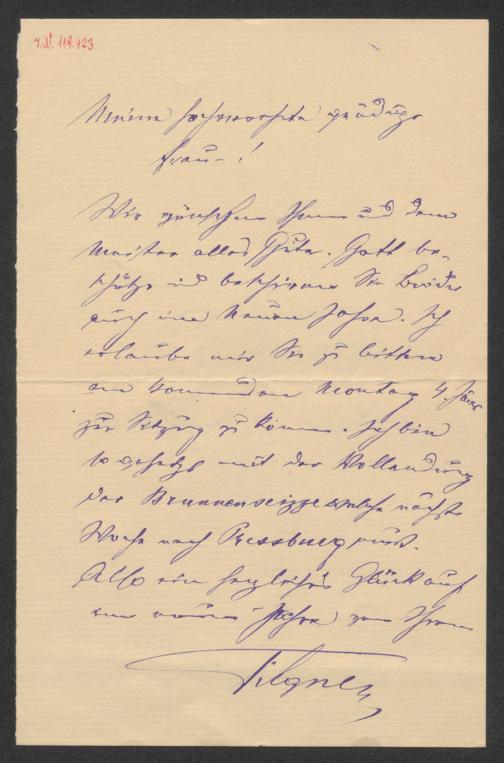 I.N. 119.423
Meine hochverehrte gnädige
Frau – !
Wir wünschen Ihnen und dem
Meister alles Gute. Gott be-
schütze und beschirme Sie Beide
auch im Neuen Jahre. Ich
erlaube mir Sie zu bitten
am kommenden Montag 4. Jänner
zur Sitzung zu kommen. Ich bin
so gehetzt mit der Vollendung
der Brunnenskizze welche nächste
Woche nach Pressburg muß.
Also ein herzliches Glück auf
im neuen Jahre von Ihrem
Tilgner